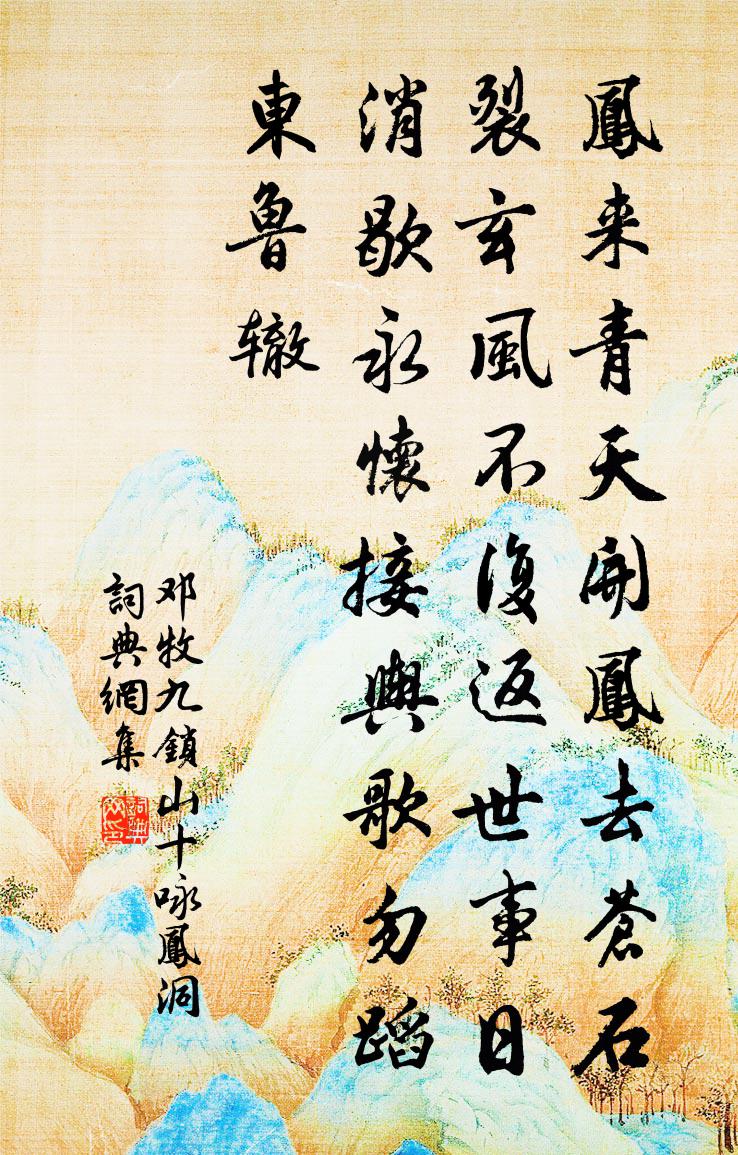 鳳来青天開鳳去蒼石
裂玄風不復返世事日
消歇永懷接輿歌勿蹈
東魯辙
邓牧九鎖山十咏鳳洞
詞典網集
詞典網印